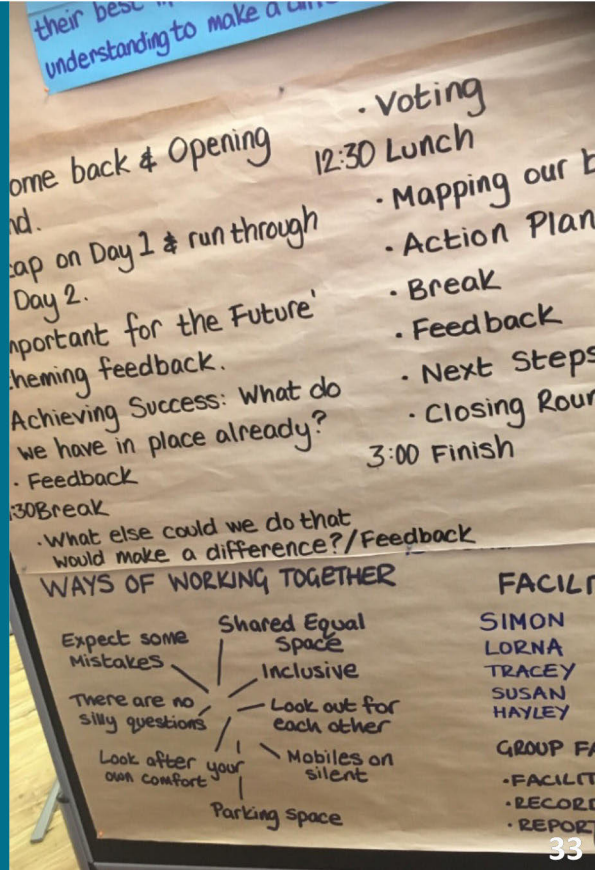 their best
understanding to make a
ome back & Opening
nd.
cap on Day 1 & run through
Day 2.
mportant for the Future'
heming feedback.
Achieving Success: What do
we have in place already?
· Feedback
:30 Break
· What else could we do that
would make a difference?/Feedback
· Voting
12:30 Lunch
· Mapping our b
· Action Plan
· Break
· Feedback
· Next Steps
· Closing Roun
3:00 Finish
WAYS OF WORKING TOGETHER
Shared Equal
Space
Expect some
Mistakes
Inclusive
There are no
silly questions
Look out for
each other
Look after your
own comfort
Mobiles on
silent
Parking space
FACILIT
SIMON
LORNA
TRACEY
SUSAN
HAYLEY
GROUP FA
· FACILIT
· RECORD
· REPORT
33